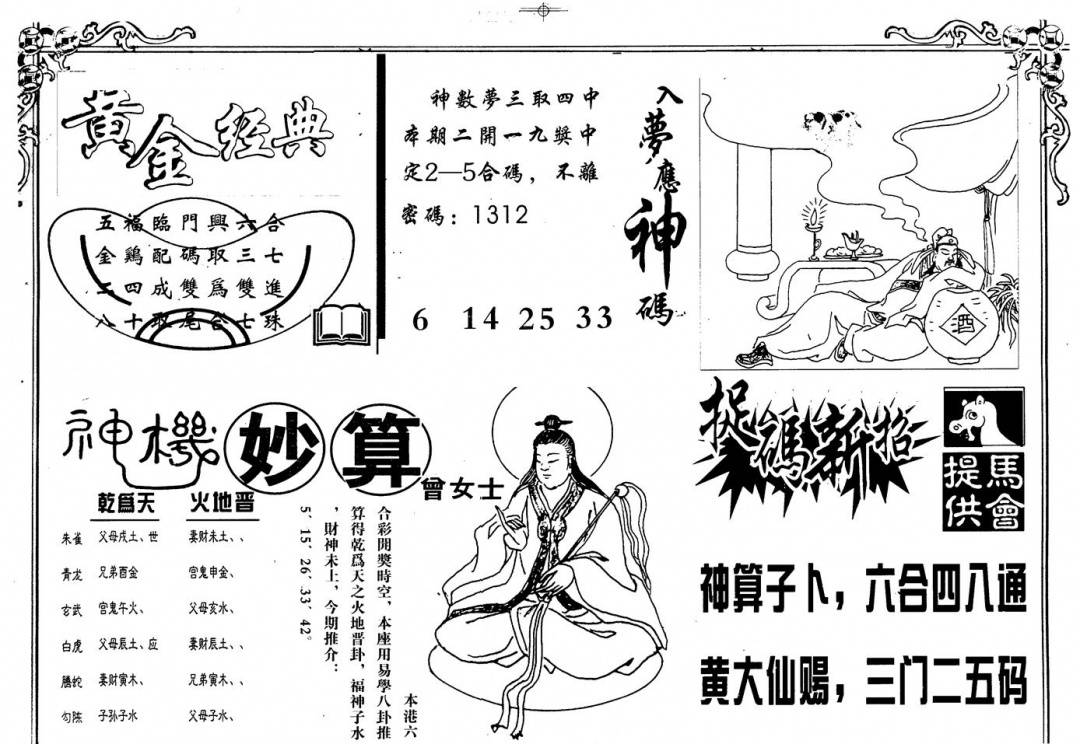 黄金经典
五福臨門興六合
金鷄配碼取三七
二四成雙爲雙進
八十取尾合七珠
神數夢三取四中
本期二開一九獎中
定2—5合碼，不離
密碼：1312
6 14 25 33
入夢應神碼
酒
神機妙算
曾女士
乾爲天 火地晋
朱雀 父母戌土、世 妻财未土、、
青龙 兄弟酉金 官鬼申金、
玄武 官鬼午火、 父母亥水、
白虎 父母辰土、应 妻财辰土、、
腾蛇 妻财寅木、 兄弟寅木、、
勾陈 子孙子水 父母子水、
本港六
合彩開獎時空，本座用易學八卦推
算得乾爲天之火地晋卦，福神子水
，財神未土，今期推介：
5´15´26´33´42°
捉碼新招
馬會提供
神算子卜，六合四八通
黄大仙赐，三门二五码